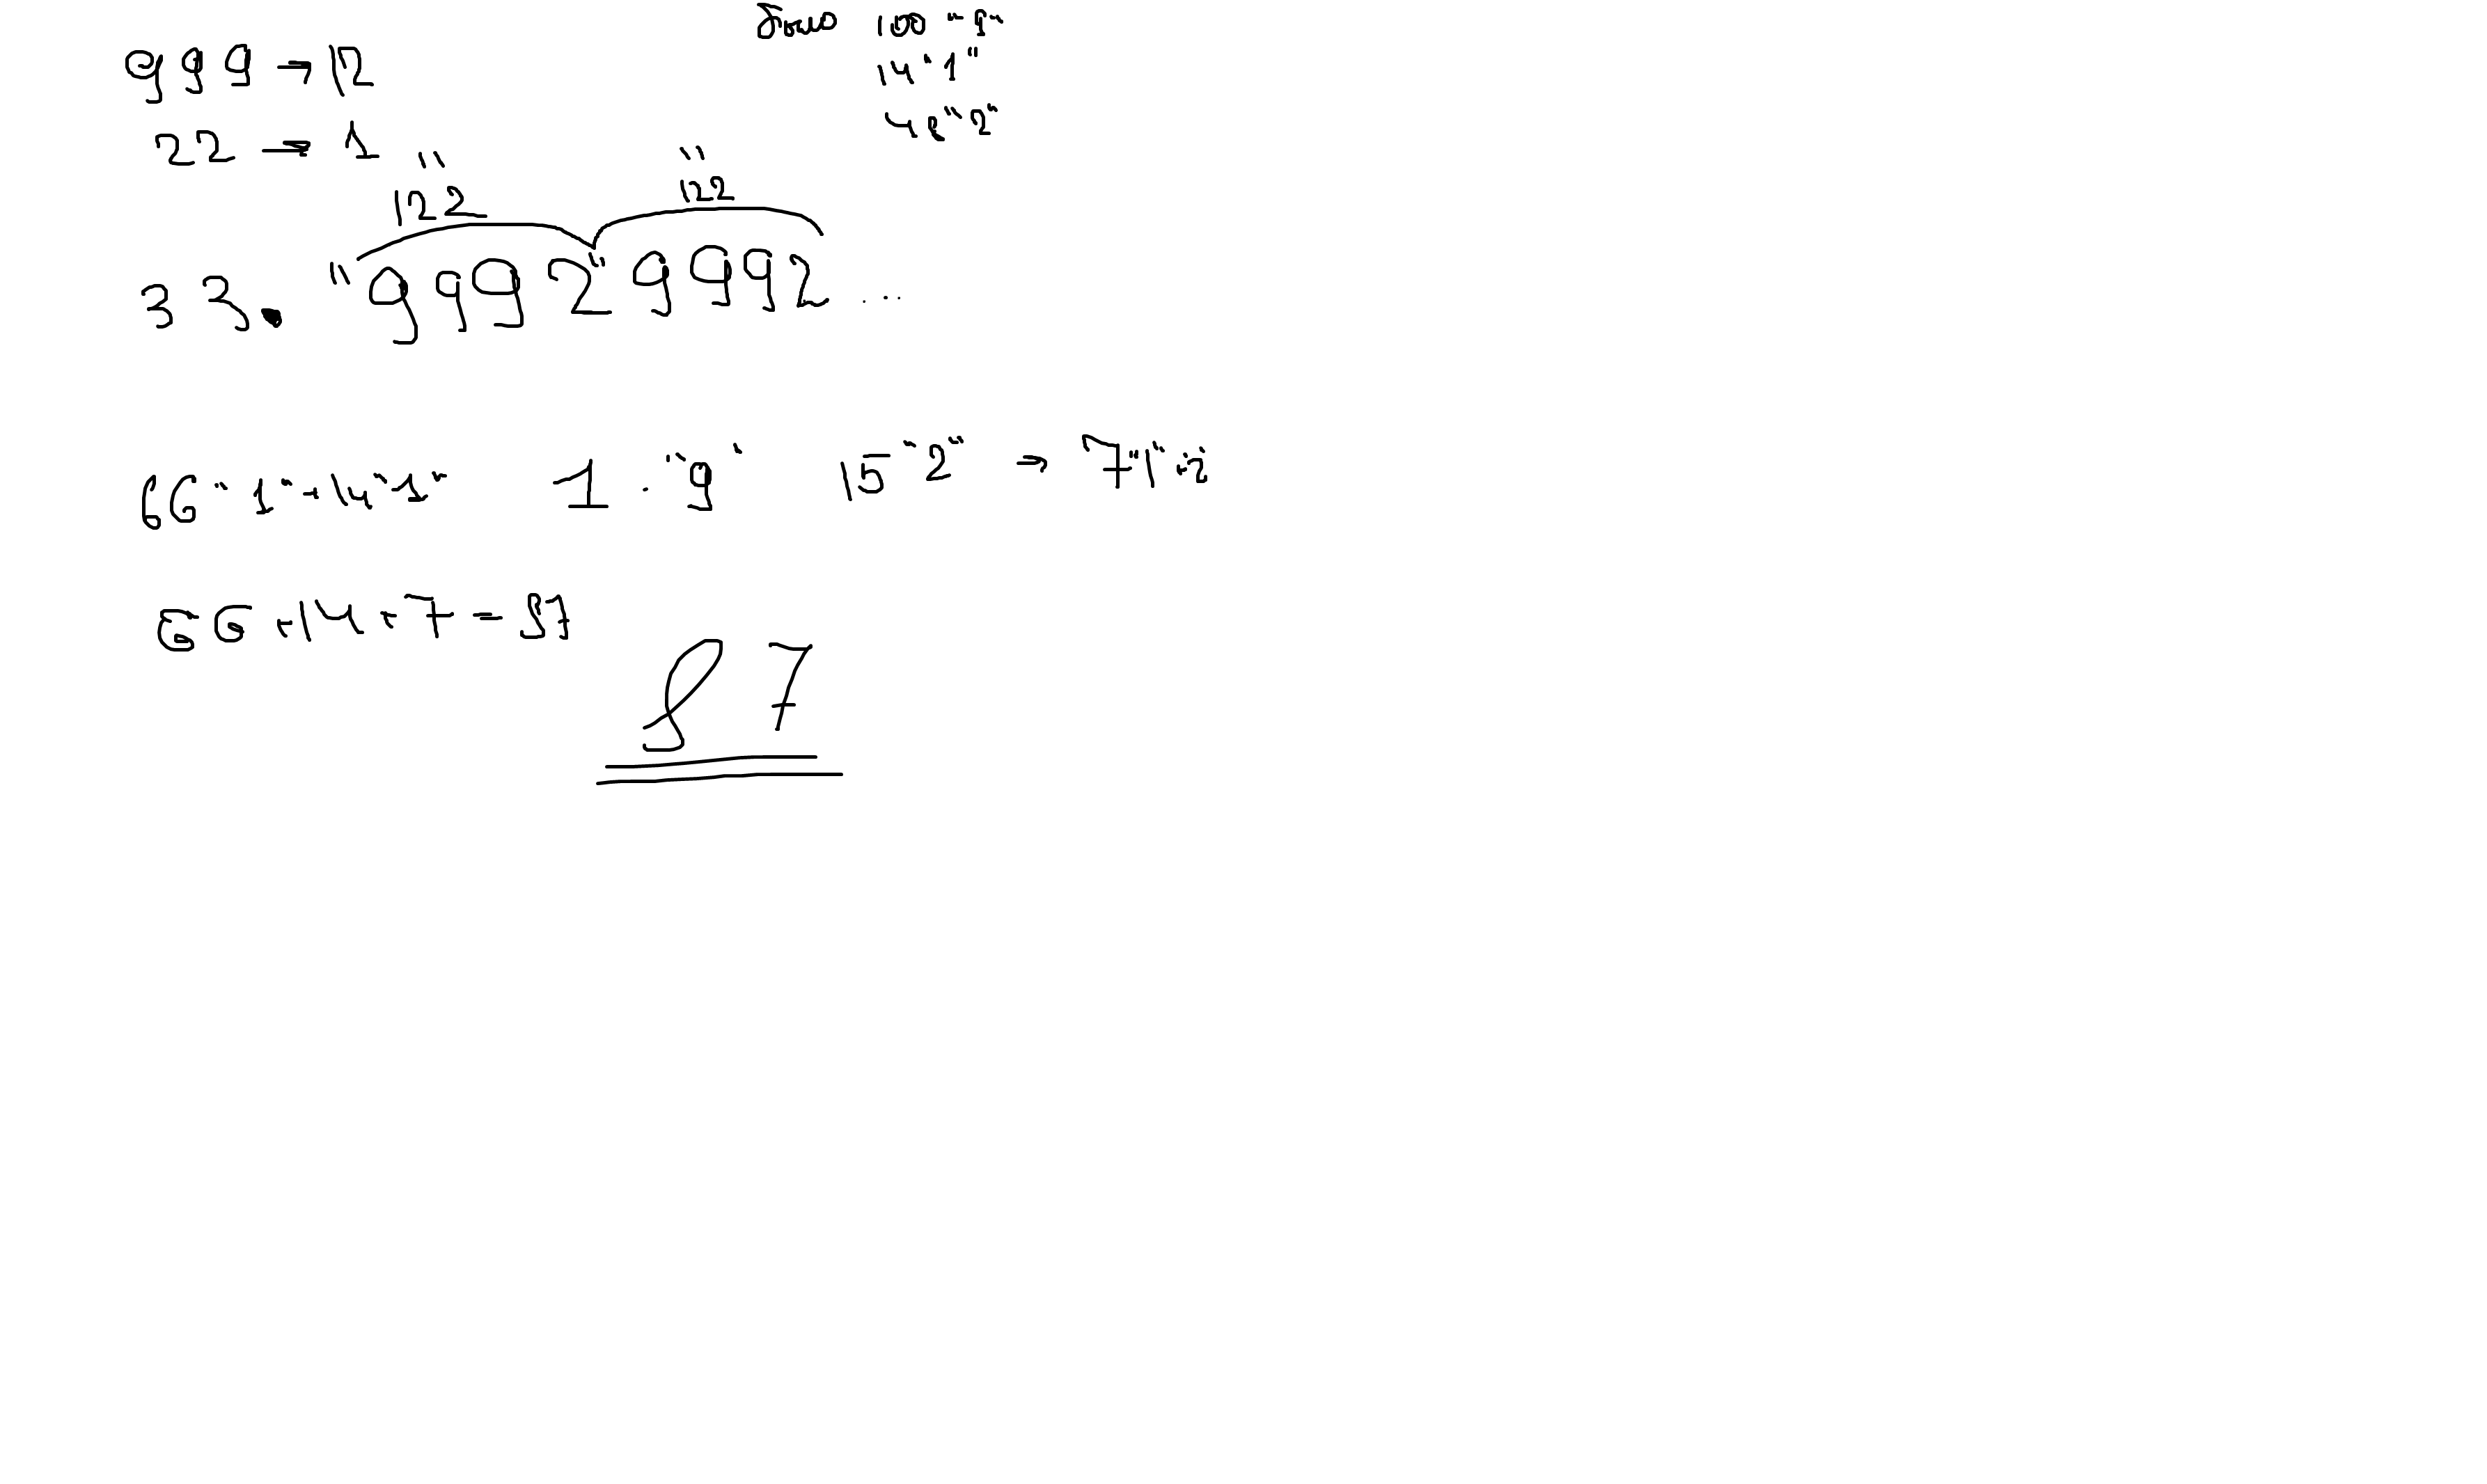 было 100 "9"
14 "1"
42 "2"
999 → 12
22 → 1
"122" "122"
33. "9992" 9992 ...
66 "1" + 14 "1" 1 . "9" 15 "2" → 7 "1" "2"
66 + 14 + 7 = 87
87